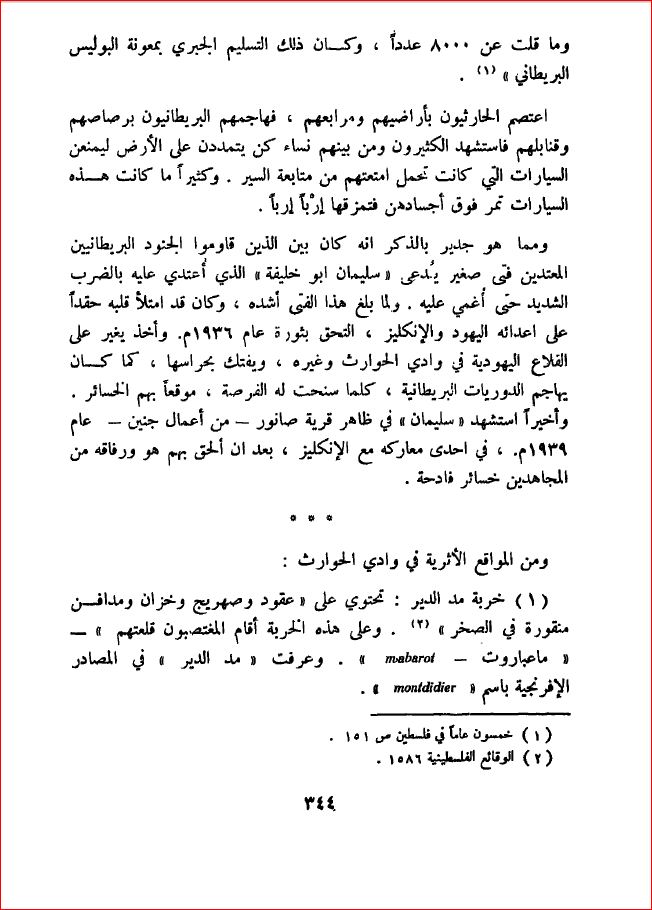 وما قلت عن ٨٠٠٠ عدداً ، وكــان ذلك التسليم الجبري بمعونة البوليس
البريطاني » (١) .
اعتصم الحارثيون بأراضيهم ومرابعهم ، فهاجمهم البريطانيون برصاصهم
وقنابلهم فاستشهد الكثيرون ومن بينهم نساء كن يتمددن على الأرض ليمنعن
السيارات التي كانت تحمل امتعتهم من متابعة السير . وكثيراً ما كانت هــذه
السيارات تمر فوق أجسادهن فتمزقها إرْباً إرباً .
ومما هو جدير بالذكر انه كان بين الذين قاوموا الجنود البريطانيين
المعتدين فتى صغير يُدعى « سليمان ابو خليفة » الذي أُعتدي عليه بالضرب
الشديد حتى أُغمي عليه . ولما بلغ هذا الفتى أشده ، وكان قد امتلأ قلبه حقداً
على اعدائه اليهود والإنكليز ، التحق بثورة عام ١٩٣٦م. وأخذ يغير على
القلاع اليهودية في وادي الحوارث وغيره ، ويفتك بحراسها ، كما كــان
يهاجم الدوريات البريطانية ، كلما سنحت له الفرصة ، موقعاً بهم الخسائر .
وأخيراً استشهد « سليمان » في ظاهر قرية صانور – من أعمال جنين – عام
١٩٣٩م. ، في احدى معاركه مع الإنكليز ، بعد ان ألحق بهم هو ورفاقه من
المجاهدين خسائر فادحة .
* * *
ومن المواقع الأثرية في وادي الحوارث :
(١) خربة مد الدير : تحتوي على « عقود وصهريج وخزان ومدافــن
منقورة في الصخر » (٢) . وعلى هذه الخربة أقام المغتصبون قلعتهم » –
« ماعباروت – mabarot » . وعرفت « مد الدير » في المصادر
الإفرنجية باسم « montdidier » .
(١) خمسون عاماً في فلسطين ص ١٥١ .
(٢) الوقائع الفلسطينية ١٥٨٦ .
٣٤٤